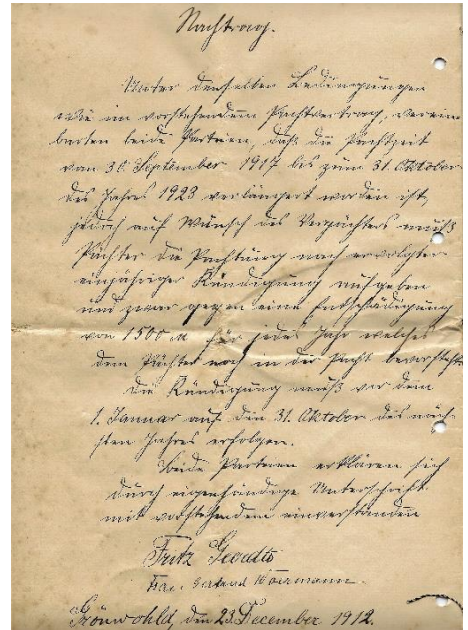 Nachtrag.
Unter denselben Bedingungen
wie im vorstehenden Pachtvertrag, verein
barten beide Parteien, daß die Pachtzeit
vom 30. September 1917 bis zum 31. Oktober
des Jahres 1923 verlängert worden ist,
jedoch auf Wunsch des Verpächters muß
Pächter die Pachtung nach erfolgter
einjähriger Kündigung aufgeben
und zwar gegen eine Entschädigung
von 1500 M für jedes Jahr welches
dem Pächter noch in der Pacht bevorsteht.
Die Kündigung muß vor dem
1. Januar auf den 31. Oktober des näch-
sten Jahres erfolgen.
Beide Parteien erklären sich
durch eigenhändige Unterschrift
mit vorstehendem einverstanden
Fritz
Frau
Grönwohld, den 23. December 1912.